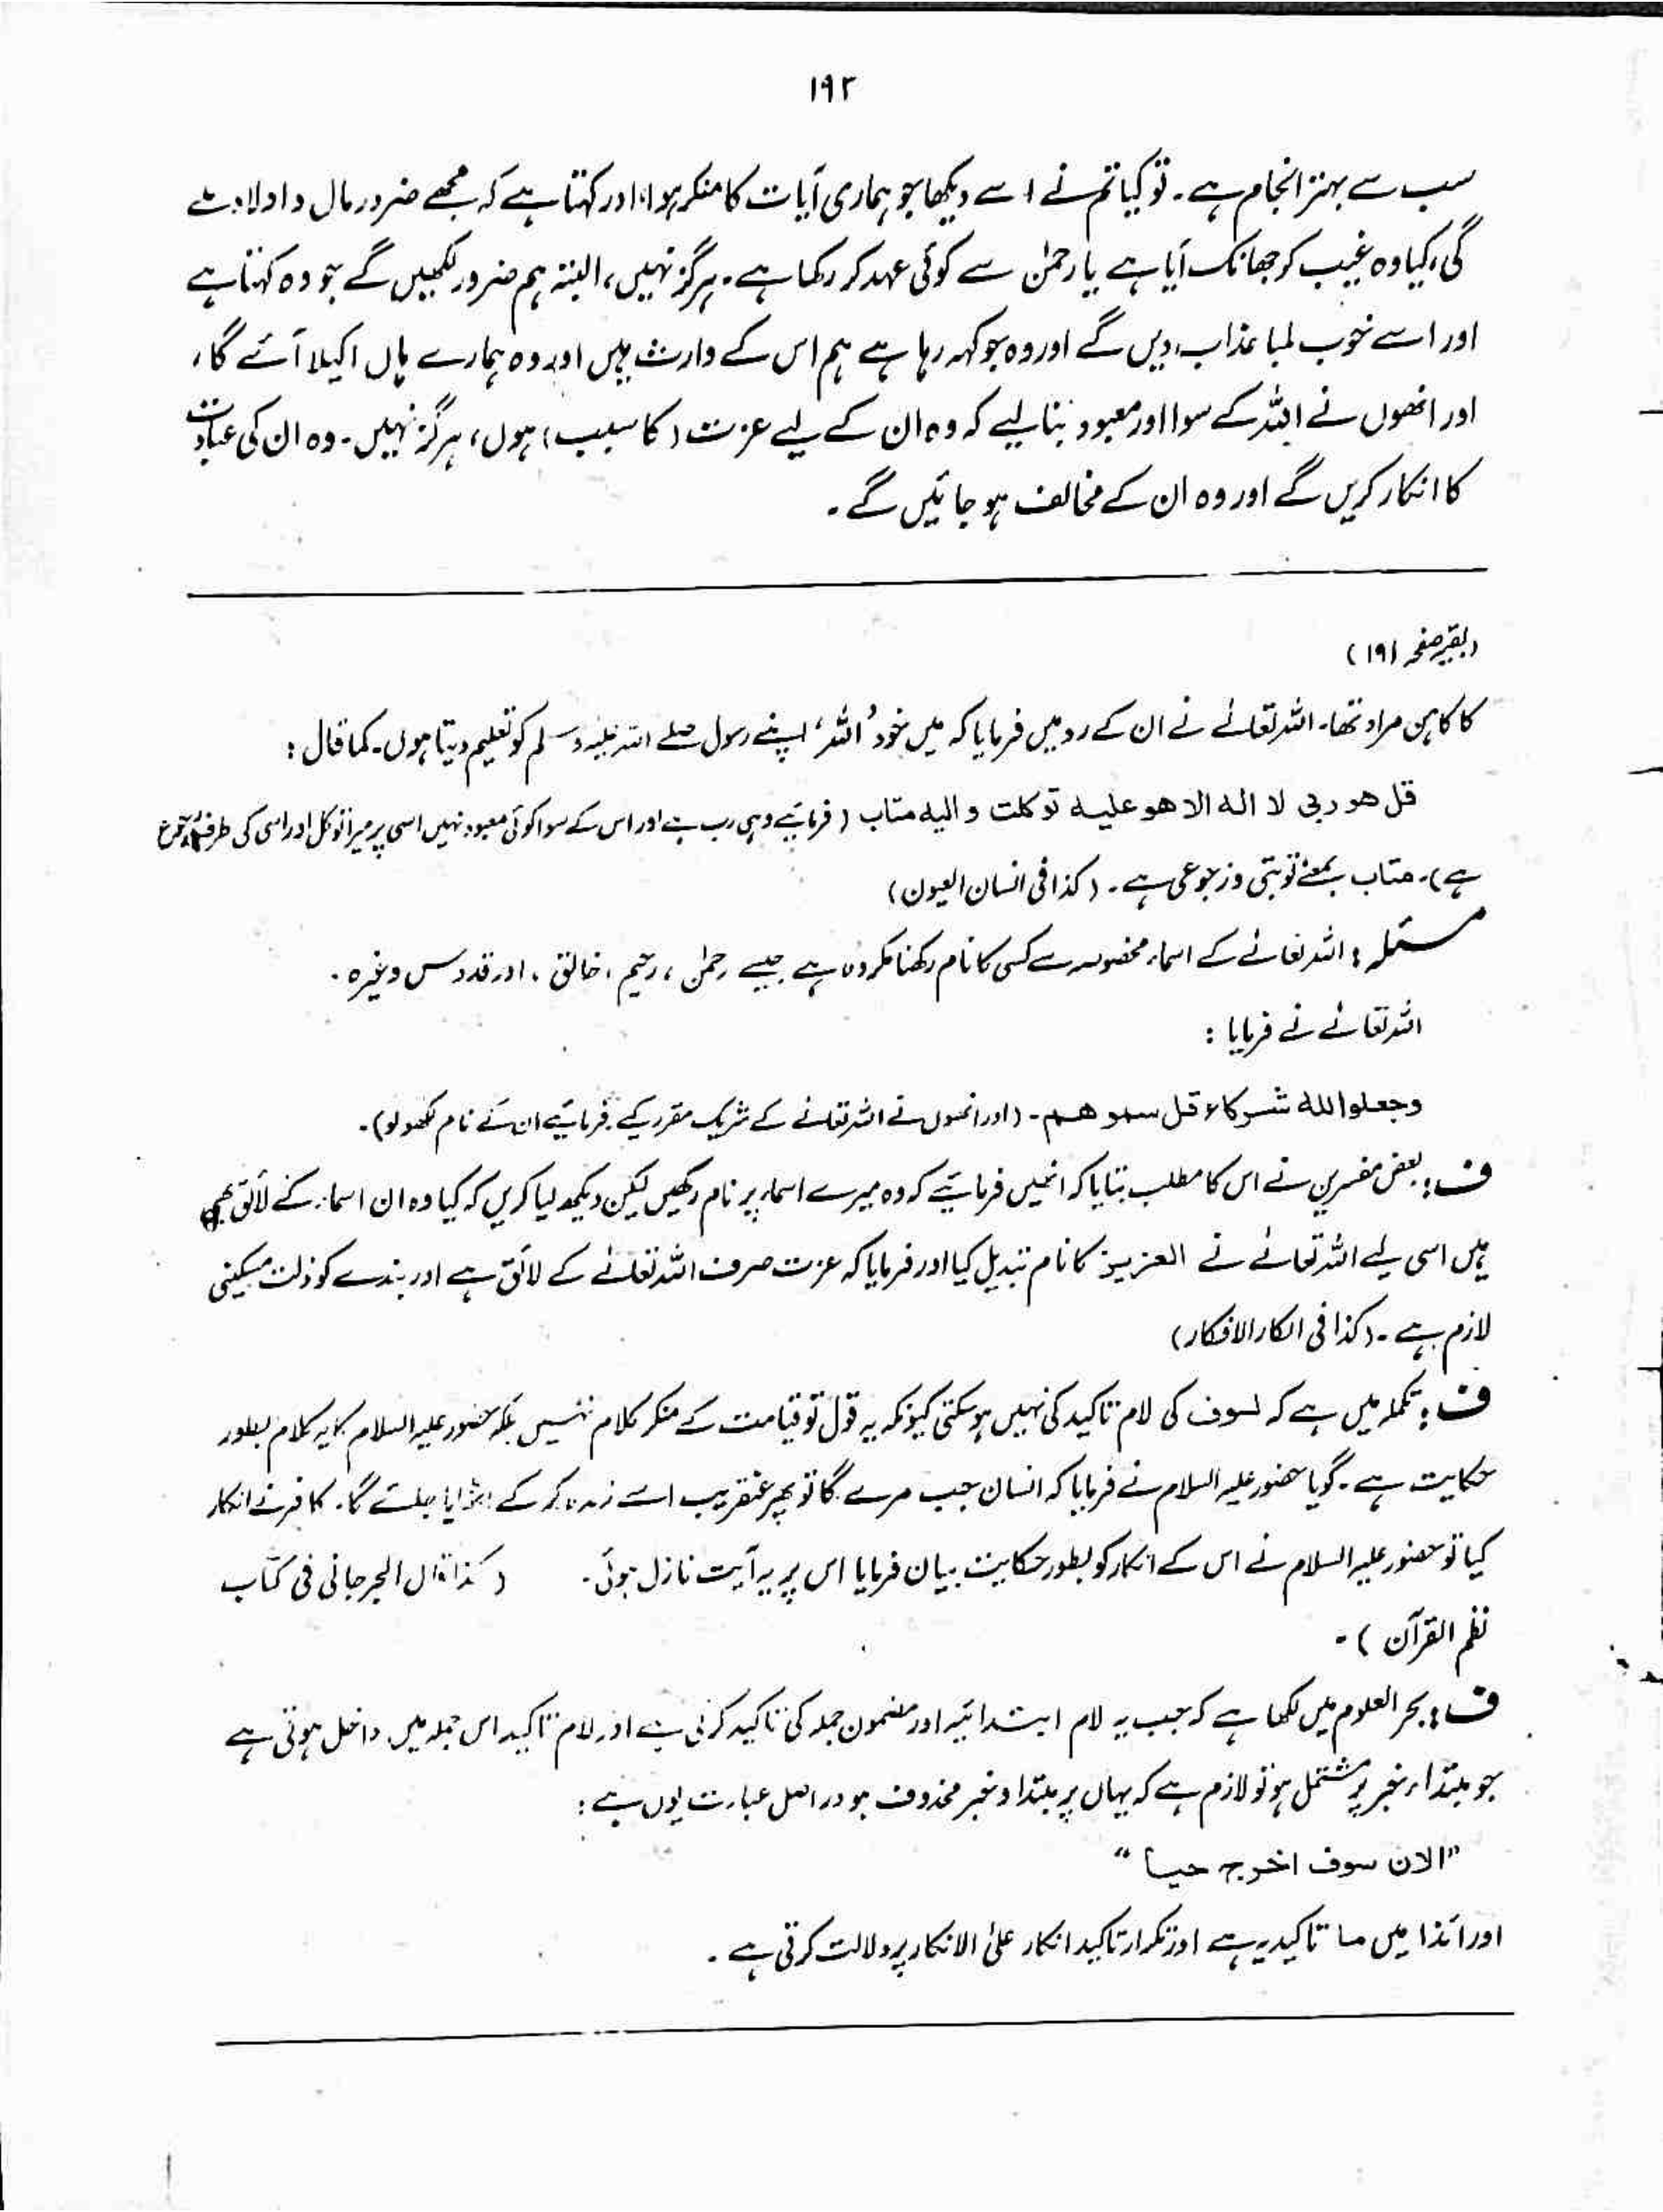 ۱۹۲
سب سے بہتر انجام ہے۔ تو کیا تم نے اسے دیکھا جو ہماری آیات کا منکر ہوا، اور کہتا ہے کہ مجھے ضرور مال و اولاد ملے
گی، کیا وہ غیب کو جھانک آیا ہے یا رحمٰن سے کوئی عہد کر رکھا ہے۔ ہرگز نہیں، البتہ ہم ضرور لکھیں گے جو وہ کہتا ہے
اور اسے خوب لمبا عذاب دیں گے اور وہ جو کہہ رہا ہے ہم اس کے وارث ہیں اور وہ ہمارے ہاں اکیلا آئے گا،
اور انھوں نے اللہ کے سوا اور معبود بنا لیے کہ وہ ان کے لیے عزت (کا سبب) ہوں، ہرگز نہیں۔ وہ ان کی عبادت
کا انکار کریں گے اور وہ ان کے مخالف ہو جائیں گے۔
(بقیہ صفحہ ۱۹۱)
کا کاہن مراد تھا۔ اللہ تعالےٰ نے ان کے رد میں فرمایا کہ میں خود 'اللہ' اپنے رسول صلے اللہ علیہ وسلم کو تعلیم دیتا ہوں۔ کما قال:
قل هو ربی لا اله الا هو علیه توکلت و الیه متاب (فرمائیے وہی رب ہے اور اس کے سوا کوئی معبود نہیں اسی پر میرا توکل اور اسی کی طرف رجوع
ہے)۔ متاب بمعنے توبتی و رجوعی ہے۔ (کذا فی انسان العیون)
مسئلہ: اللہ تعالےٰ کے اسماء مخصوصہ سے کسی کا نام رکھنا مکروہ ہے جیسے رحمٰن، رحیم، خالق، اور قدوس وغیرہ۔
اللہ تعالےٰ نے فرمایا:
وجعلوا لله شرکاء قل سموهم۔ (اور انھوں نے اللہ تعالےٰ کے شریک مقرر کیے فرمائیے ان کے نام تو لو)۔
ف: بعض مفسرین نے اس کا مطلب بتایا کہ انھیں فرمائیے کہ وہ میرے اسماء پر نام رکھیں لیکن دیکھ لیا کریں کہ کیا وہ ان اسماء کے لائق بھی
ہیں اسی لیے اللہ تعالےٰ نے العزیز کا نام تبدیل کیا اور فرمایا کہ عزت صرف اللہ تعالےٰ کے لائق ہے اور بندے کو ذلت مسکینی
لازم ہے۔ (کذا فی ابکار الافکار)
ف: تکملہ میں ہے کہ لسوف کی لام تاکید کی نہیں ہو سکتی کیونکہ یہ قول تو قیامت کے منکر کلام نہیں بلکہ حضور علیہ السلام کا یہ کلام بطور
حکایت ہے۔ گویا حضور علیہ السلام نے فرمایا کہ انسان جب مرے گا تو پھر عنقریب اسے زندہ کر کے اٹھایا جائے گا۔ کافر نے انکار
کیا تو حضور علیہ السلام نے اس کے انکار کو بطور حکایت بیان فرمایا اس پر یہ آیت نازل ہوئی۔ (کذا قال الجرجانی فی کتاب
نظم القرآن)۔
ف: بحر العلوم میں لکھا ہے کہ جب یہ لام ابتدائیہ اور مضمون جملہ کی تاکید کرتی ہے اور لام تاکید اس جملہ میں داخل ہوتی ہے
جو مبتداء و خبر پر مشتمل ہو تو لازم ہے کہ یہاں پر مبتدا و خبر محذوف ہو دراصل عبارت یوں ہے:
"الان سوف اخرج حیا"
اور ائذا میں ما تاکیدیہ ہے اور تکرار تاکید انکار علیٰ الانکار پر دلالت کرتی ہے۔